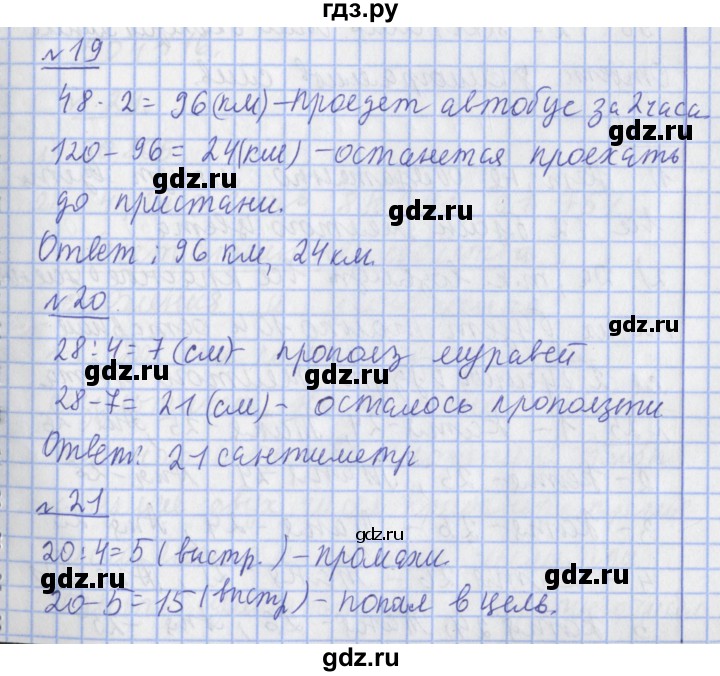 гдз.ру
№ 19
48 · 2 = 96 (км) – проедет автобус за 2 часа
120 – 96 = 24 (км) – останется проехать
gdz.ru
до пристани.
gdz.ru
Ответ: 96 км, 24 км.
№ 20
gdz.ru
28 : 4 = 7 (см) – прополз муравей
gdz.ru
28 – 7 = 21 (см) – осталось проползти
gdz.ru
Ответ: 21 сантиметр
№ 21
gdz.ru
20 : 4 = 5 (выстр.) – промахи.
gdz.ru
gdz.ru
20 – 5 = 15 (выстр) – попал в цель.
gdz.ru